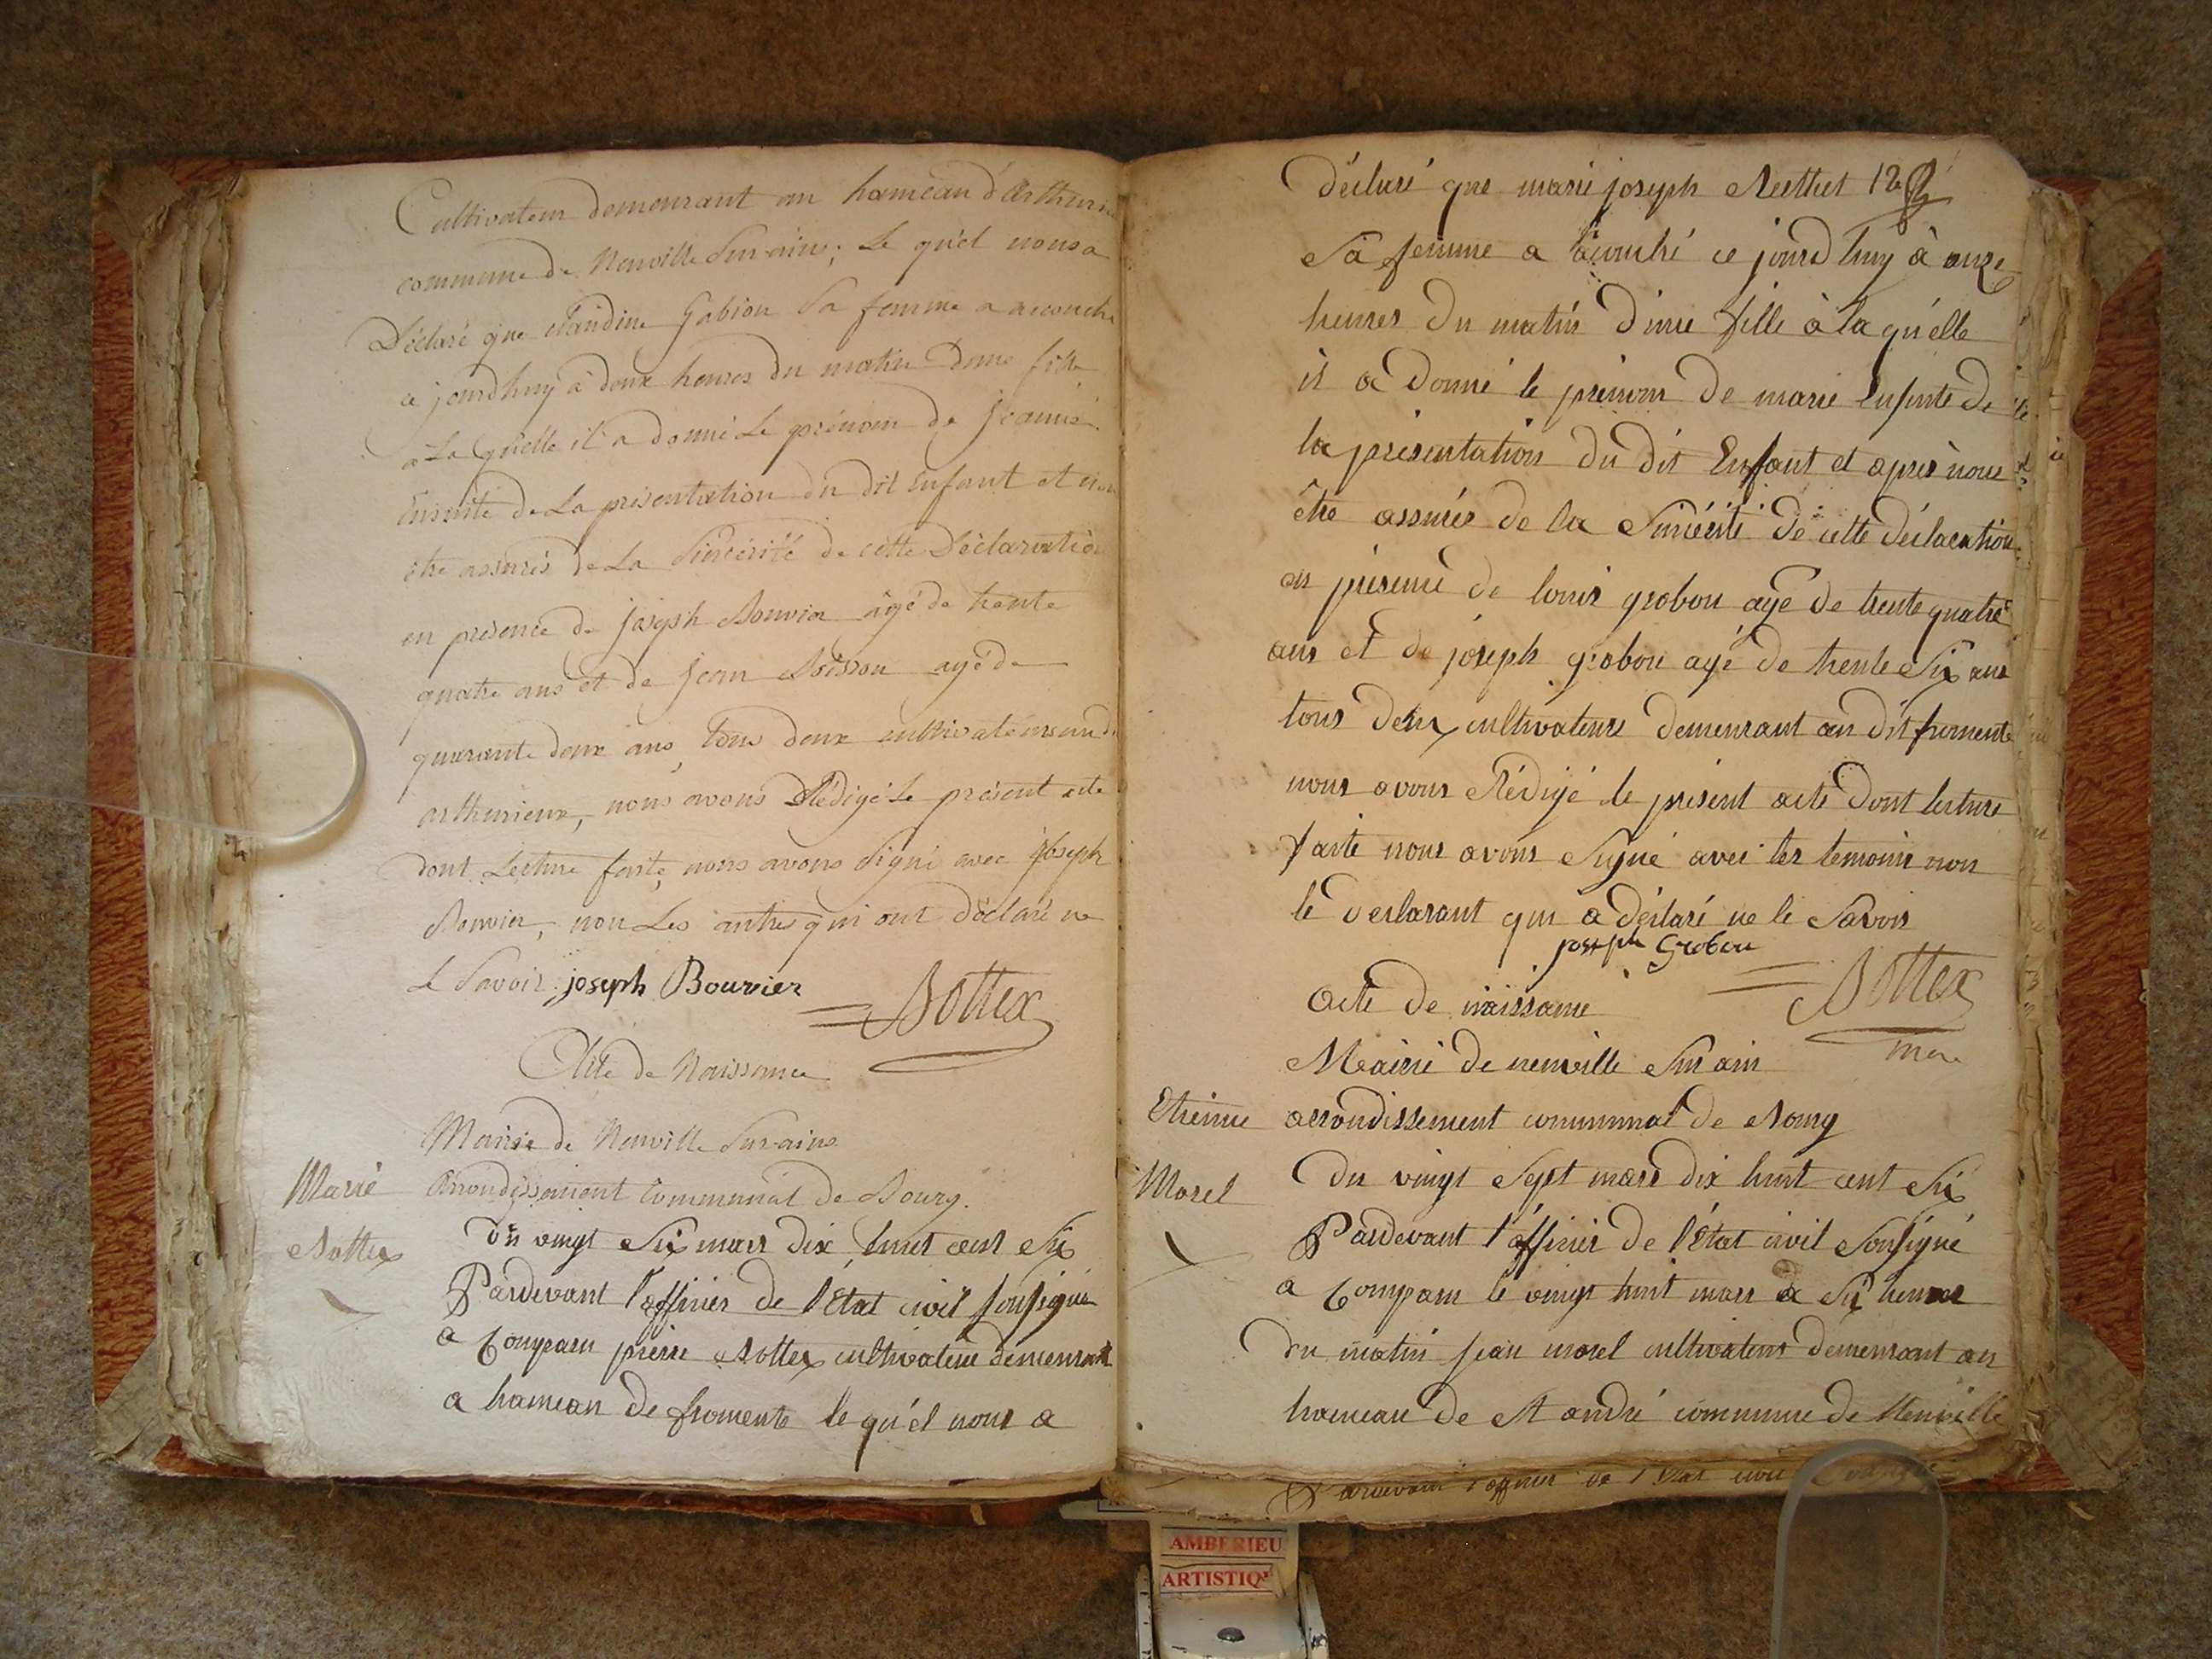 Cultivateur demeurant au hameau d'arthurieux
commune de Neuville Sur ain; Le quél nous a
Déclaré que claudine Gabion Sa femme a accouché
ce jourdhuy à deux heures du matin dune fille
a La quélle il a donné Le prénom de jeanne.
Ensuite de La présentation du dit Enfant et nous
etre assurés de La Sincérité de cette Déclaration
en présence de joseph Bouvier âgé de trente
quatre ans et de jean Boisson agé de
quarante deux ans, tous deux cultivateurs aud.
arthurieux, nous avons Rédigé Le présent acte
dont Lecture faite, nous avons Signé avec joseph
Bouvier, non Les autres qui ont déclaré ne
Le Savoir. joseph Bouvier
Bottex
Acte de Naissance
Mairie de Neuville Sur ain
Marie Arrondissement Communal de Bourg.
Bottex Du vingt Six mars dix huit cent Six
Pardevant l'officier de l'Etat civil sousigné
a Comparu pierre Bottex cultivateur demeurant
a hameau de fromente le qu'él nous a
déclaré que marie joseph 12
Sa femme a acouché ce jourdhuy à onze
heures Du matin d'une fille à la qu'élle
il a Donné le prénom De marie Ensuite De
la présentation du dit Enfant et apres nous
être assurés de la Sincérité de cette déclaration
en présence de louis grobon agé de trente quatre
ans et de joseph grobon agé de trente Six ans
tous deux cultivateurs demeurant au dit fromente
nous avons Rédigé le présent acte dont lecture
faite nous avons Signé avec les temoins non
le declarant qui a déclaré ne le Savoir
joseph Grobon
Bottex
acte de naissance
maire
Mairie de neuville Sur ain
Etienne arrondissement communal de Bourg
Morel Du vingt Sept mars dix huit cent Six
Pardevant l'officier de l'État civil Sousigné
a Comparu le vingt huit mars a Six heures
du matin jean morel cultivateur demeurant au
hameau de St andré commune de Neuville
Pardevant l'officier de l'Etat civil
AMBERIEU
ARTISTIQ